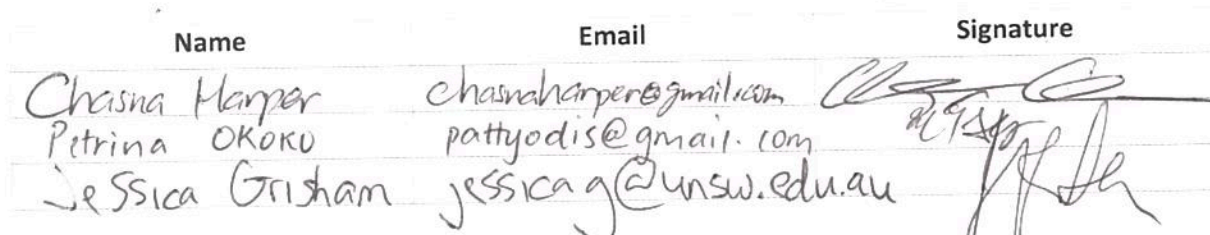 Name Email Signature
Chasna Harper chasnaharper@gmail.com
Petrina OKOKU pattyodis@gmail.com
Jessica Grisham jessicag@unsw.edu.au